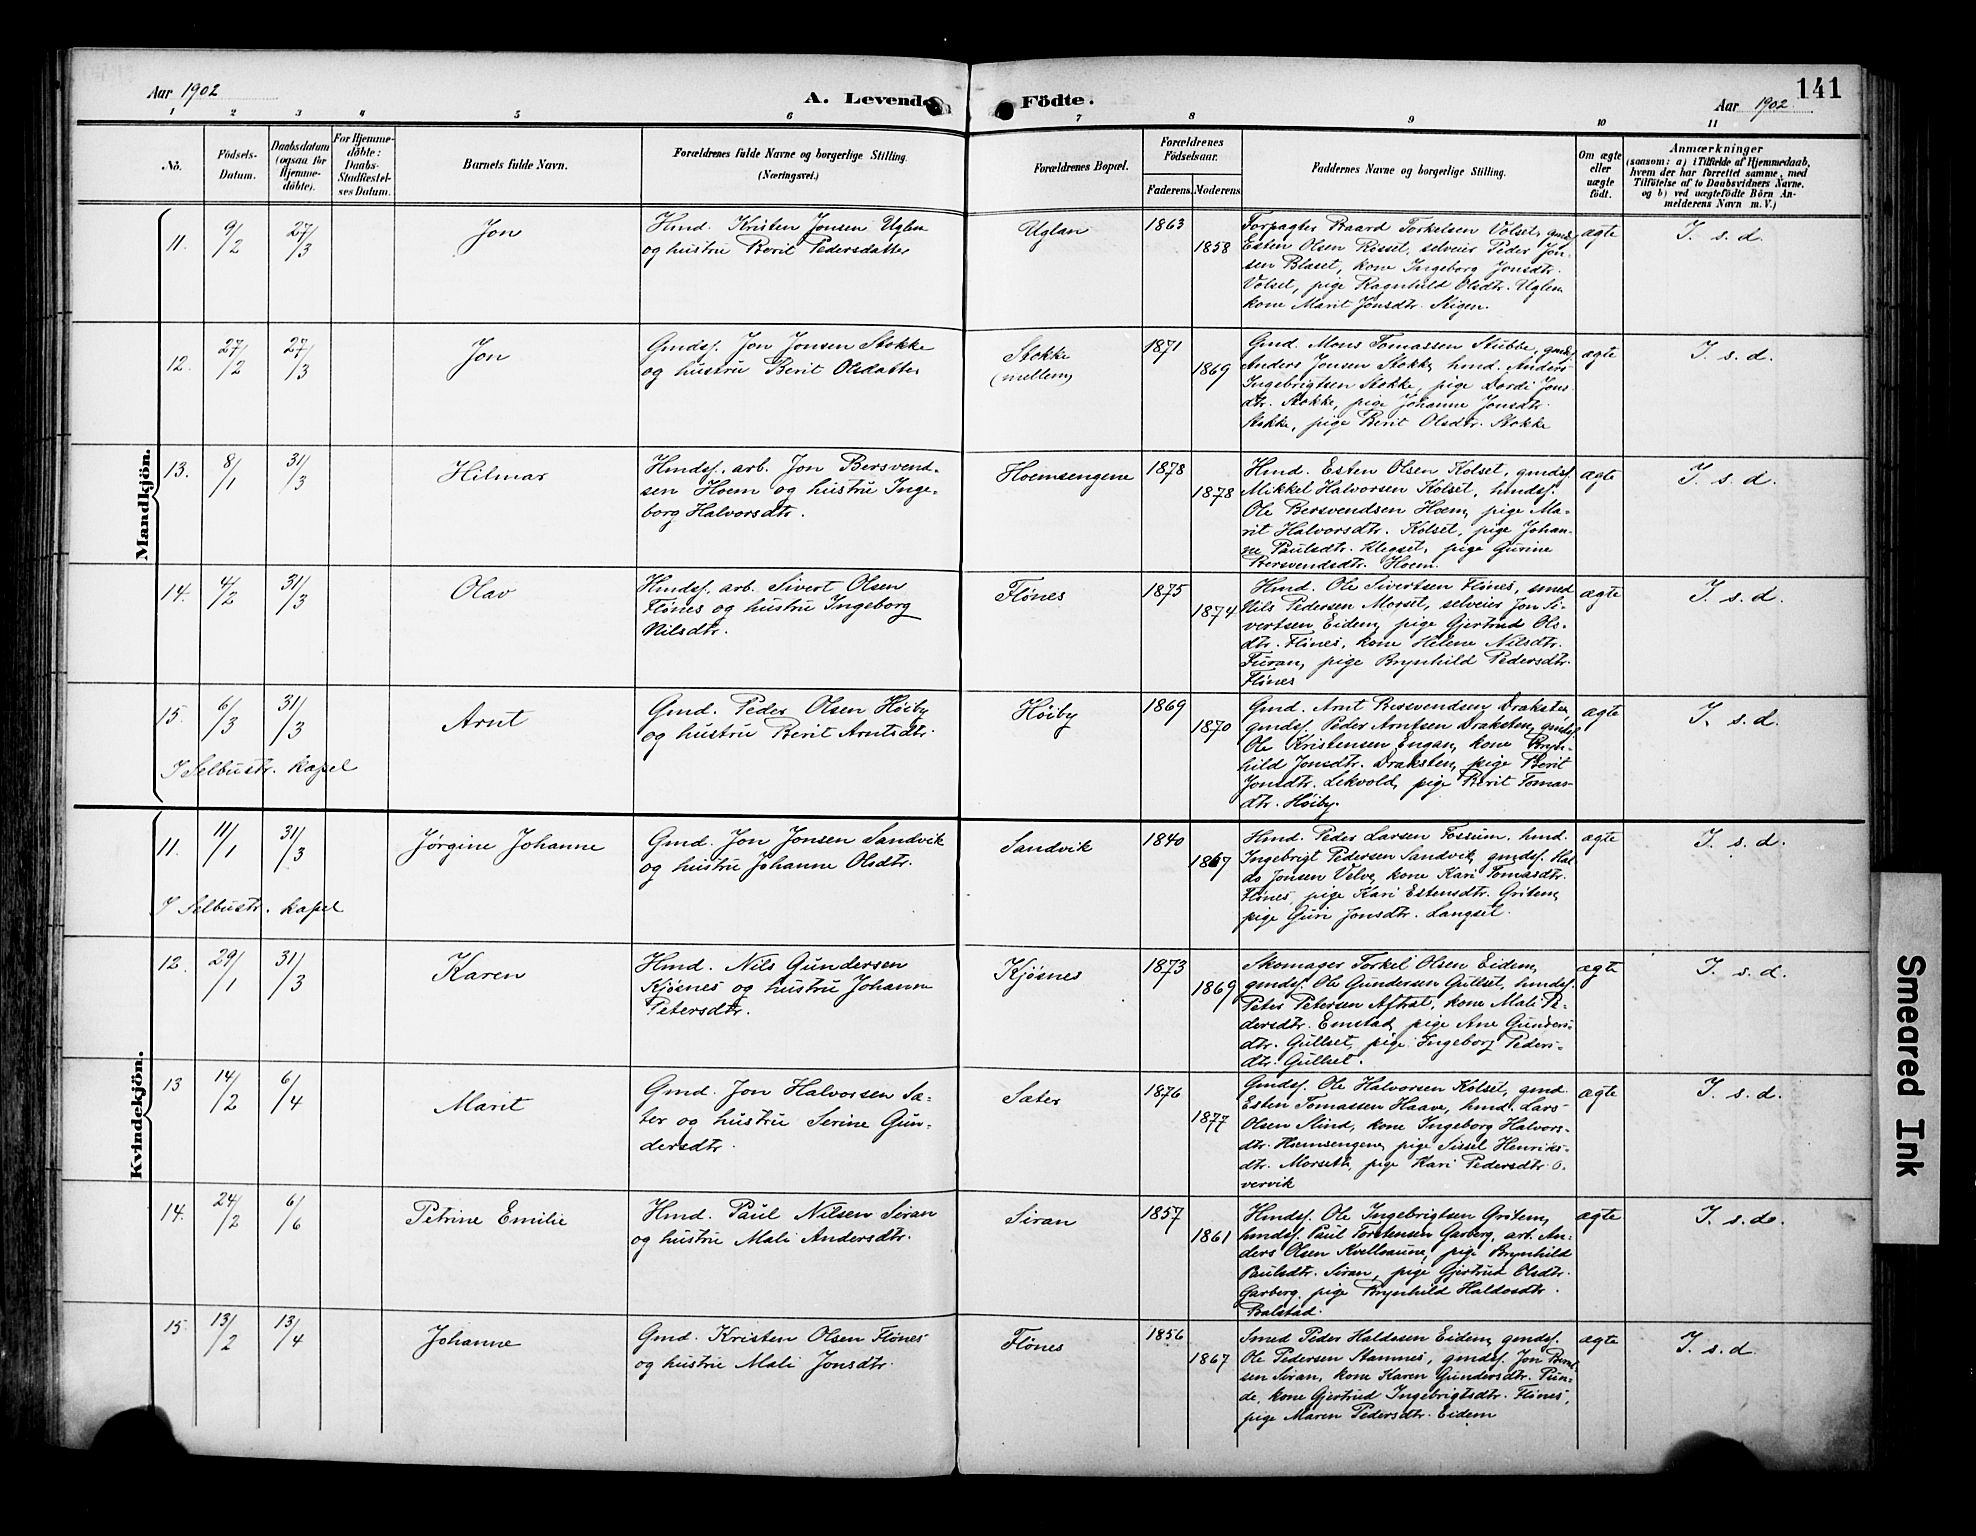 Aar 1902
A. Levende Födte.
141
Aar 1902
1 2 3 4 5 6 7 8 9 10 11
No.
Födsels-
Datum.
Daabsdatum
(ogsaa for
Hjemme-
döbte).
For Hjemme-
döbte:
Daabs-
Stadfæstel-
ses Datum.
Barnets fulde Navn.
Forældrenes fulde Navne og borgerlige Stilling.
(Næringsvei.)
Forældrenes Bopæl.
Forældrenes
Födselsaar.
Faderens. Moderens.
Faddernes Navne og borgerlige Stilling.
Om ægte
eller
uægte
födt.
Anmærkninger
(saasom: a) i Tilfælde af Hjemmedaab,
hvem der har forrettet samme, med
Tilföielse af to Daabsvidners Navne,
og b) ved uægtefödte Börn An-
melderens Navn m. V.)
Mandkjön.
11. 9/2 27/3 Jon
Hmd. Kristen Jonsen Uglen
og hustru Berit Pedersdatter
Uglan 1863 1858
Forpagter Baard Torkelsen Volset, gmdsf.
Esten Olsen Rösset, selveier Peder Jon-
sen Blaset, kone Ingeborg Jonsdtr.
Volset, pige Ragnhild Olsdtr. Uglen
kone Marit Jonsdtr. Stigen.
ægte I. s. d.
12. 27/2 27/3 Jon
Gmdsf. Jon Jonsen Stokke
og hustru Berit Olsdatter
Stokke
(mellem)
1871 1869
Gmd. Mons Tomassen Stubbe, gmdsf.
Anders Jonsen Stokke, hmd. Anders
Ingebrigtsen Stokke, pige Dordi Jons-
dtr. Stokke, pige Johanne Jonsdtr.
Stokke, pige Berit Olsdtr. Stokke
ægte I. s. d.
13. 8/1 31/3 Hilmar
Hmdsf. arb. Jon Bersvend-
sen Hoem og hustru Inge-
borg Halvorsdtr.
Hoemsengene 1878 1878
Hmd. Esten Olsen Kolset, gmdsf.
Mikkel Halvorsen Kolset, hmdsf.
Ole Bersvendsen Hoem, pige Ma-
rit Halvorsdtr. Kolset, pige Johan-
ne Paulsdtr. Klegset, pige Gurine
Bersvendsdtr. Hoem.
ægte I. s. d.
14. 4/2 31/3 Olav
Hmdsf. arb. Sivert Olsen
Flönes og hustru Ingeborg
Nilsdtr.
Flönes 1875 1874
Hmd. Ole Sivertsen Flönes, smed
Nils Pedersen Morset, selveier Jon Si-
vertsen Eidem, pige Gjertrud Ols-
dtr. Flönes, kone Helene Nilsdtr.
Furan, pige Brynhild Pedersdtr.
Flönes
ægte I. s. d.
15. 6/3 31/3 Arnt
Gmd. Peder Olsen Höiby
og hustru Berit Arntsdtr.
Höiby 1869 1870
Gmd. Arnt Bersvendsen Draksten,
gmdsf. Peder Arntsen Draksten, gmdsf.
Ole Kristensen Engan, kone Bryn-
hild Jonsdtr. Draksten, pige Berit
Jonsdtr. Lekvold, pige Berit Tomas-
dtr. Höiby.
ægte I. s. d.
I Selbustr. kapel
Kvindekjön.
11. 11/1 31/3 Jørgine Johanne
Gmd. Jon Jonsen Sandvik
og hustru Johanne Olsdtr.
Sandvik 1840 1867
Hmd. Peder Larsen Fossum, hmd.
Ingebrigt Pedersen Sandvik, gmdsf. Hal-
do Jonsen Velve, kone Kari Tomasdtr.
Flönes, pige Kari Estensdtr. Grötem,
pige Guri Jonsdtr. Langset.
ægte I. s. d.
I Selbustr. kapel
12. 29/1 31/3 Karen
Hmd. Nils Gundersen
Kjösnes og hustru Johanne
Petersdtr.
Kjösnes 1873 1869
Skomager Torkel Olsen Eidem,
gmdsf. Ole Gundersen Gullset, hmdsf.
Peter Petersen Aftret, kone Mali Pe-
dersdtr. Emstad, pige Ane Gunders-
dtr. Gullset, pige Ingeborg Peders-
dtr. Gullset.
ægte I. s. d.
13 14/2 6/4 Marit
Gmd. Jon Halvorsen Sæ-
ter og hustru Serine Gun-
dersdtr.
Sæter 1876 1877
Gmdsf. Ole Halvorsen Kolset, gmd.
Esten Tomassen Haave, hmd. Lars
Olsen Slind, kone Ingeborg Halvors-
dtr. Hoemsengene, pige Sissel Henriks-
dtr. Morseth, pige Kari Pedersdtr. O-
vervik
ægte I. s. d.
14. 24/2 6/6 Petrine Emilie
Hmd. Paul Nilsen Siran
og hustru Mali Andersdtr.
Siran 1857 1861
Hmdsf. Ole Ingebrigtsen Grötem,
hmdsf. Paul Torstensen Garberg, arb. An-
ders Olsen Kvellohaune, pige Brynhild
Paulsdtr. Siran, pige Gjertrud Olsdtr.
Garberg, pige Brynhild Haldosdtr.
Balstad.
ægte I. s. d.
15. 13/2 13/4 Johanne
Gmd. Kristen Olsen Flönes
og hustru Mali Jonsdtr.
Flönes 1856 1867
Smed Peder Haldosen Eidem, gmdsf.
Ole Pedersen Stamnes, gmdsf. Jon Bernt-
sen Siran, kone Karen Gundersdtr. Tün-
de, kone Gjertrud Ingebrigtsdtr. Flönes,
pige Maren Pedersdtr. Eidem
ægte I. s. d.
Smeared Ink